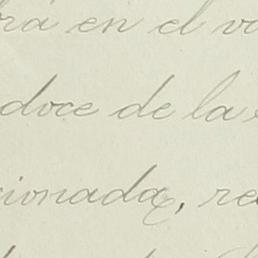 rá en el v
doce de la
cionada, re